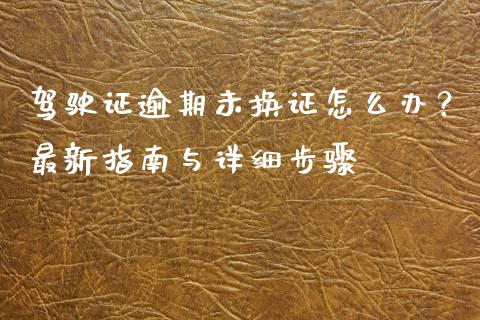 驾驶证逾期未换证怎么办？
最新指南与详细步骤